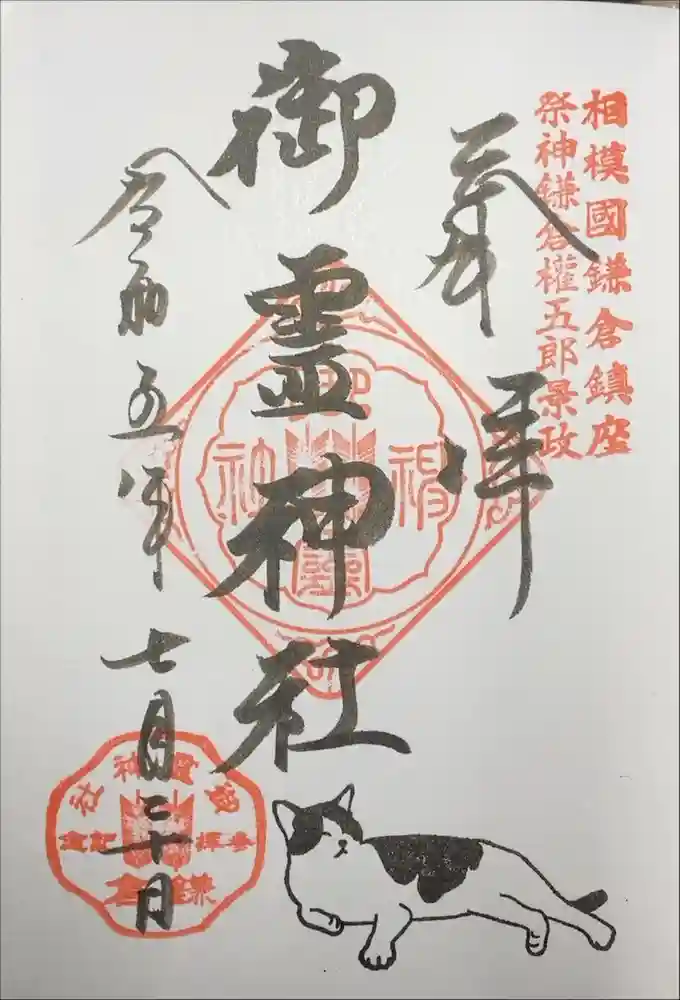 相模國鎌倉鎮座
祭神鎌倉權五郎景政
奉拝
御霊神社
令和五年七月二十日
御霊神社
参拝記念
鎌倉